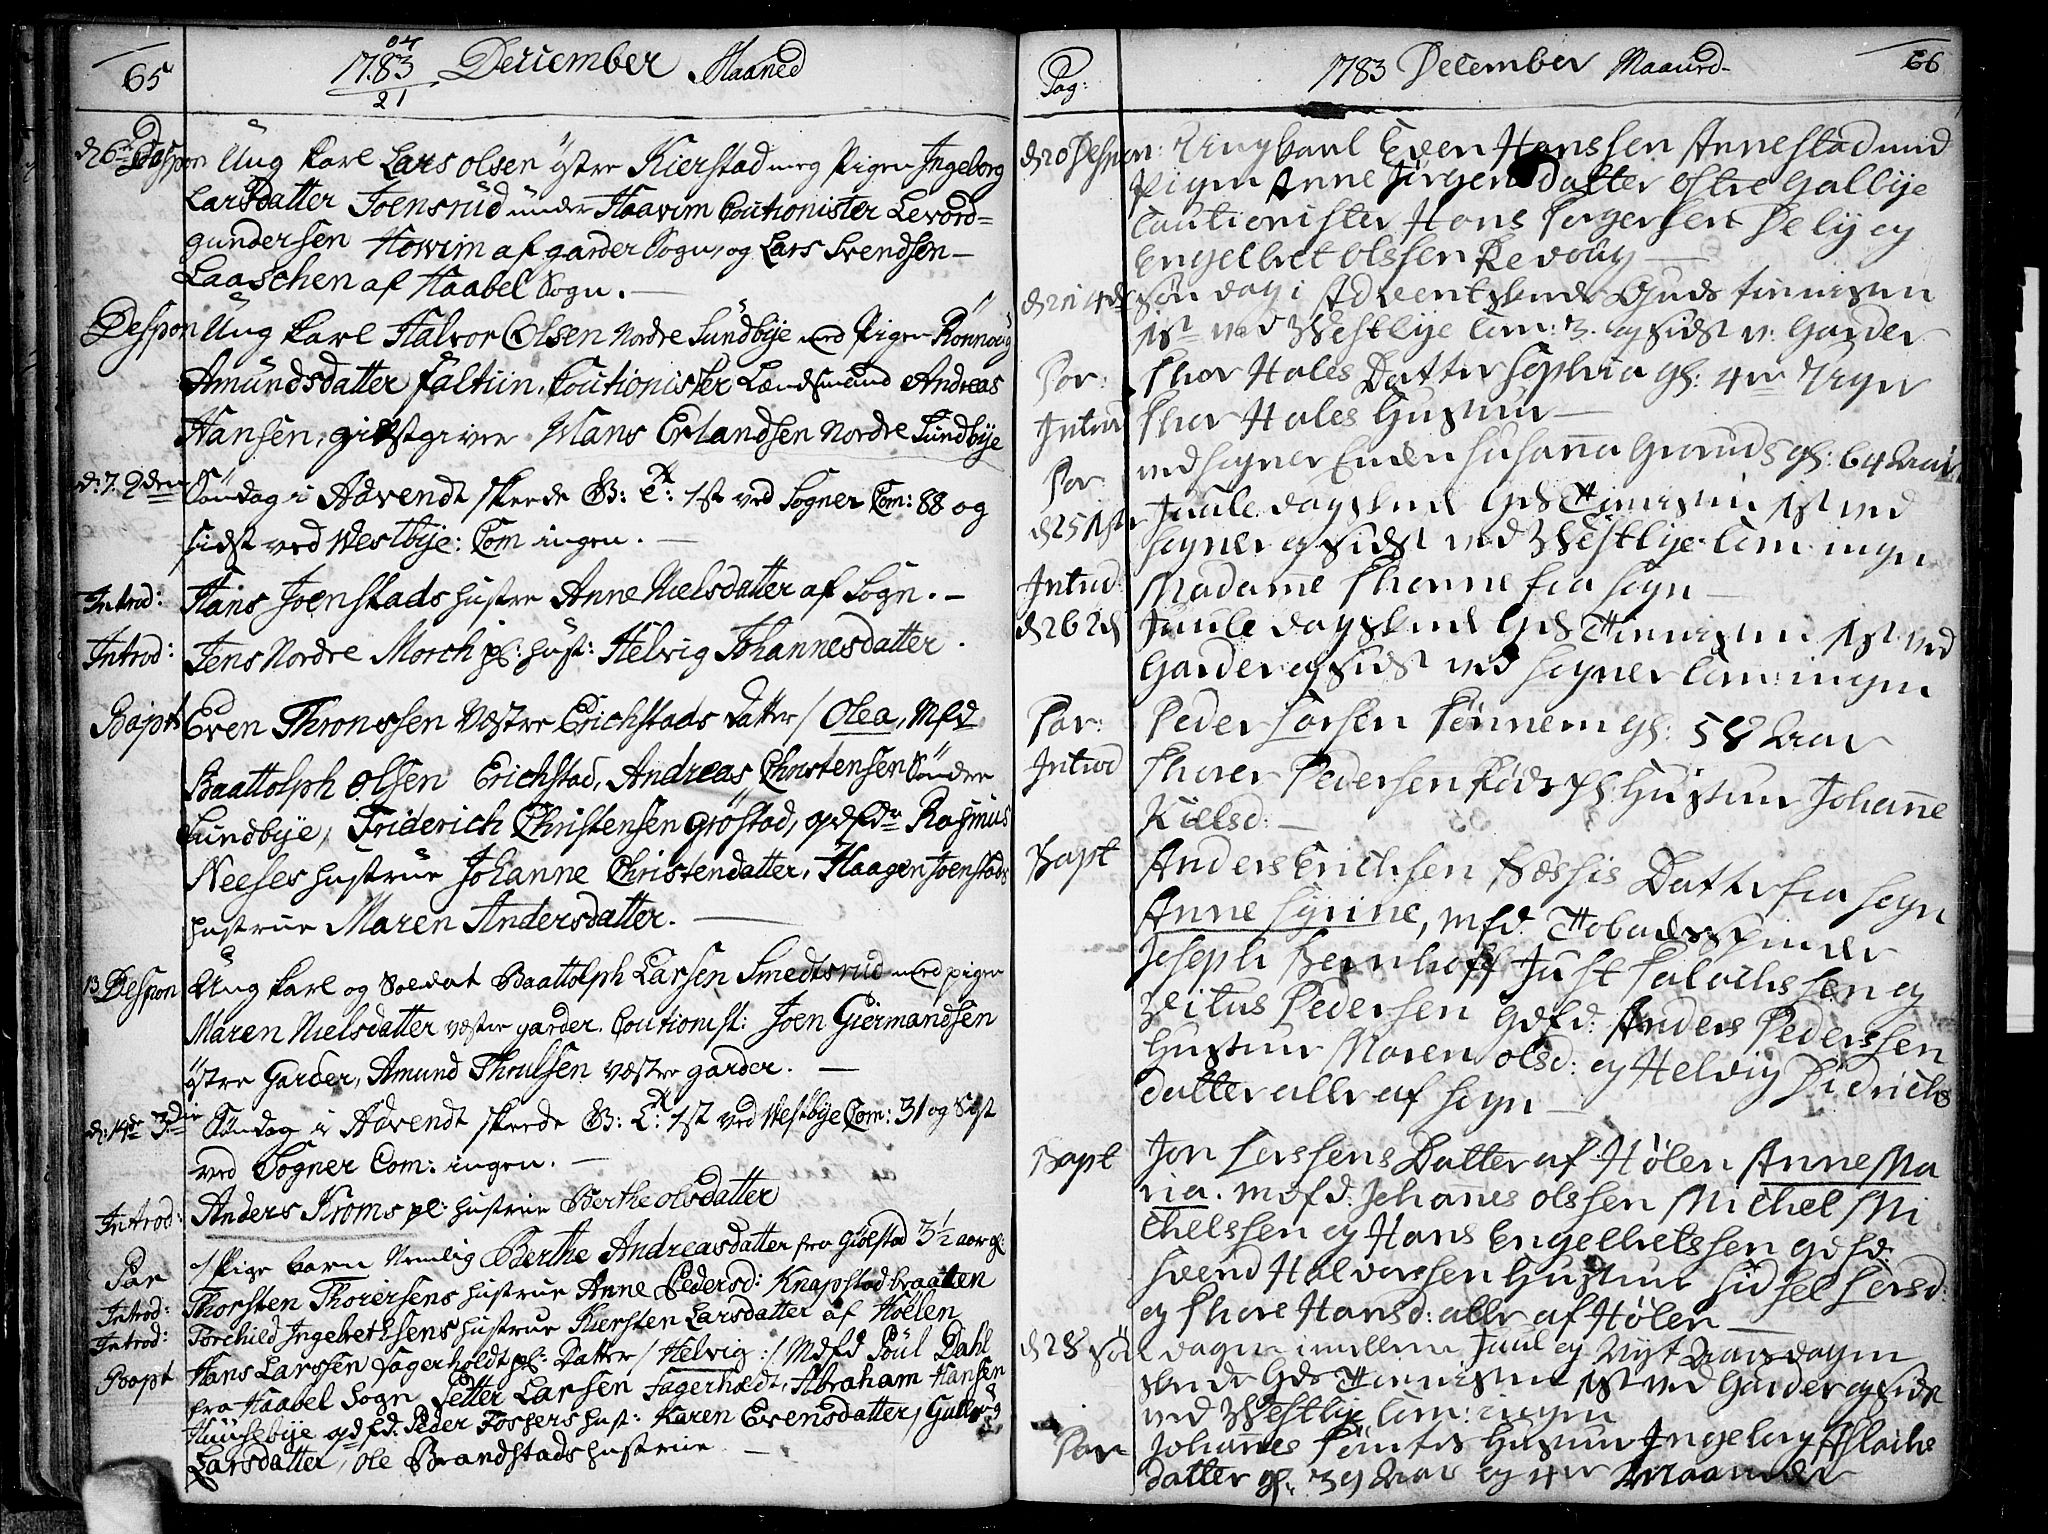 65
1783 December Maaned
21
d 6te Despon Ung Karl Lars Olsen östre Kierstad meg Pigen Ingeborg
Larsdatter Joensrud under Haavim Coutionister Levord=
gundersen Howim af garder Sogn, og Lars Svendsen
Laaschen af Haabel Sogn.
Despon Ung Karl Halvor Olsen Nordre Sundbye med Pigen Rönnoug
Amundsdatter Faltiin, Coutionister Lændsmand Andreas
Hansen, giestgiver Hans Erlandsen Nordre Sundbye
d: 7. 2den Söndag i Advendt skeede G: T: 1st ved Sogner Com: 88 og
sidst ved Westbye: Com ingen.
Introd: Hans Joenstads hustru Anne Nielsdatter af Sogn.
Introd: Jens Nordre Morch pl: hust: Helvig Johannesdatter.
Bapt Even Thronssen Væstre Erichstads datter / Olea, Mfd
Baattolph Olsen Erichstad, Andreas Christensen Söndre
Sundbye, Friderich Christensen Gröstad, qdfdr Rasmus
Neeses hustrue Johanne Christendatter, Haagen Joenstads
hustrue Maren Andersdatter.
13 Despon Ung Karl og Soldat Baattolph Larsen Smedtsrud med pigen
Maren Nielsdatter væstre garder. Coutionist: Joen Giermandsen
östre Garder, Amund Thoulsen væstre garder.
d: 14de 3die Söndag i Advendt skeede G: T: 1st ved Westbye Com: 31 og Sist
ved Sogner Com: ingen.
Introd: Anders Kroms pl: hustrue Berthe Olsdatter
Par 1 Pige barn Nemlig Berthe Andreasdatter fra Giölstad 3½ aar gl:
Introd: Thorsten Thorersens hustrue Anne Pedersd: Knapstadbraaten
Introd: Torchild Ingebrethsens hustrue Kiersten Larsdatter af Hölen
Bapt Hans Larssen Fagerholdt pl: Datter / Helvig :/ Mdfd Poul Dahl
fra Haabel Sogn Petter Larsen Fagerholdt, Abraham Hansen
Huusebye qdfd: Peder Foshers hust: Karen Evensdatter, Gullaug
Larsdatter, Ole Brandstads hustrue
66
Pag: 1783 December Maaned
d 20 Despon: Ung karl Even Hanssen Annestad med
Pigen Anne Jörgensdatter Ostre Galbye
Cautionister Hans Torgersen Delij og
Engelbret Olssen Revoug
d 21 4de Sön dag i Advent skeede Guds tienisten
1st ved Westbye Com: 3. og sidst v: Garder
Por: Thor Hales Datter Sophia gl: 4re Uger
Introd Thor Hales Hustrue
Por ved Sogner Enken Susanna Grorud gl: 64 Aar
d 25 1ste Juule dag skeed Gds Tienisten 1st ved
Sogner og sidst ved Westbye Com ingen
Introd: Madame Thorne fra Sogn
d 26 2d Juule dag skeed Gds Tienisten 1st ved
Garder og sidst ved Sogner Com: ingen
Par: Peder Larsen Tönnem gl: 58 Aar
Introd Thorer Pedersen Föds pl Hustrue Johanne
Kielsd:
Bapt Anders Erichsen Næssis Datter fra Sogn
Anne Syrine, Mfd. Tobaksspinder
Joseph Bernhoff Just Falachssen og
Zeitus Pedersen Qdfd: Anders Pederssen
Hustrue Maren Olsd: og Helvig Didrichs
datter alle af Sogn
Bapt Jon Larssens Datter af Hölen Anne Ma
ria. Mdfd: Johannes Olssen Michel Mi
chelssen og Hans Engelbretssen Qdfd:
Svend Halvorssen Hustrue Sidsel Larsd:
og Thore Hansd: alle af Hölen
d 28 Sön dagen imellem Juul og Nyt Aarsdagen
skeede Gds Tienisten 1st ved Garder og Sidst
ved Westbye Com: ingen
Par Johannes Tömtes Hustrue Ingeborg Aslachs
datter gl: 39 Aar og 4re Maaneder